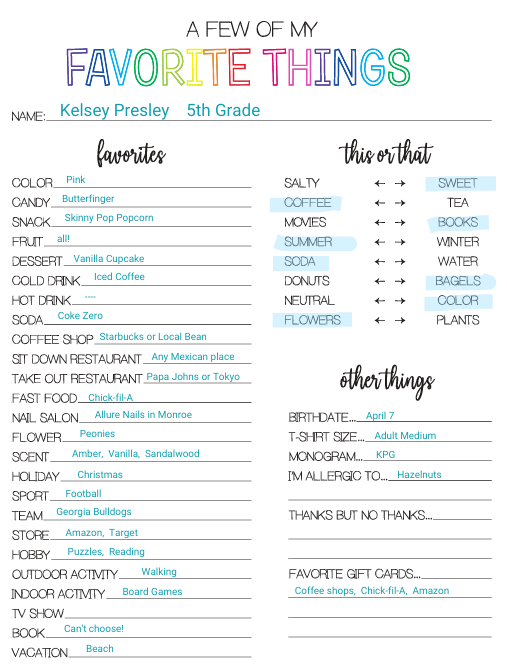 A FEW OF MY
FAVORITE THINGS
NAME: Kelsey Presley 5th Grade
favorites
COLOR Pink
CANDY Butterfinger
SNACK Skinny Pop Popcorn
FRUIT all!
DESSERT Vanilla Cupcake
COLD DRINK Iced Coffee
HOT DRINK ----
SODA Coke Zero
COFFEE SHOP Starbucks or Local Bean
SIT DOWN RESTAURANT Any Mexican place
TAKE OUT RESTAURANT Papa Johns or Tokyo
FAST FOOD Chick-fil-A
NAIL SALON Allure Nails in Monroe
FLOWER Peonies
SCENT Amber, Vanilla, Sandalwood
HOLIDAY Christmas
SPORT Football
TEAM Georgia Bulldogs
STORE Amazon, Target
HOBBY Puzzles, Reading
OUTDOOR ACTIVITY Walking
INDOOR ACTIVITY Board Games
TV SHOW
BOOK Can't choose!
VACATION Beach
this or that
SALTY ← → SWEET
COFFEE ← → TEA
MOVIES ← → BOOKS
SUMMER ← → WINTER
SODA ← → WATER
DONUTS ← → BAGELS
NEUTRAL ← → COLOR
FLOWERS ← → PLANTS
other things
BIRTHDATE... April 7
T-SHIRT SIZE... Adult Medium
MONOGRAM... KPG
I'M ALLERGIC TO... Hazelnuts
THANKS BUT NO THANKS...
FAVORITE GIFT CARDS...
Coffee shops, Chick-fil-A, Amazon